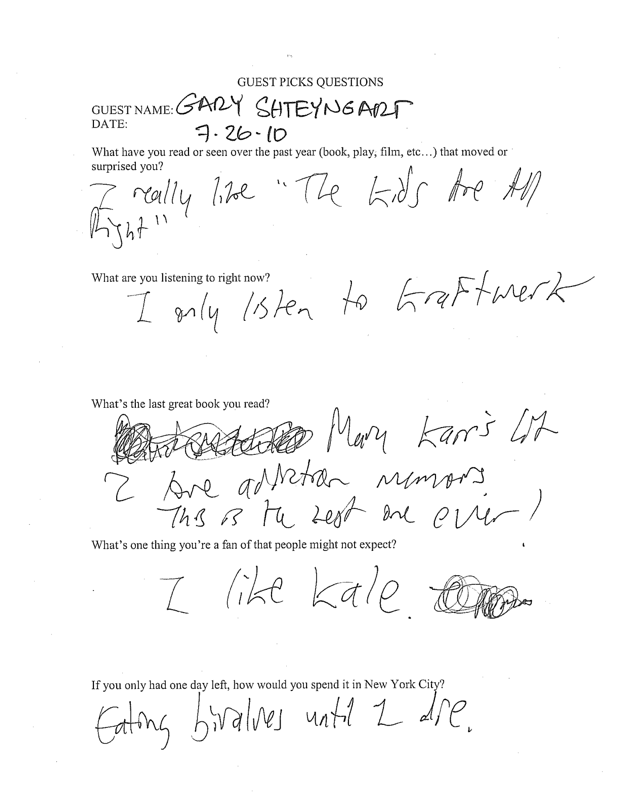 GUEST PICKS QUESTIONS
GUEST NAME: GARY SHTEYNGART
DATE: 7-26-10
What have you read or seen over the past year (book, play, film, etc…) that moved or
surprised you?
I really like "The Kids Are All
Right"
What are you listening to right now?
I only listen to Kraftwerk
What's the last great book you read?
Mary Karr's Lit
I love addiction memoirs
This is the best one ever!
What's one thing you're a fan of that people might not expect?
I like kale.
If you only had one day left, how would you spend it in New York City?
Eating bivalves until I die.